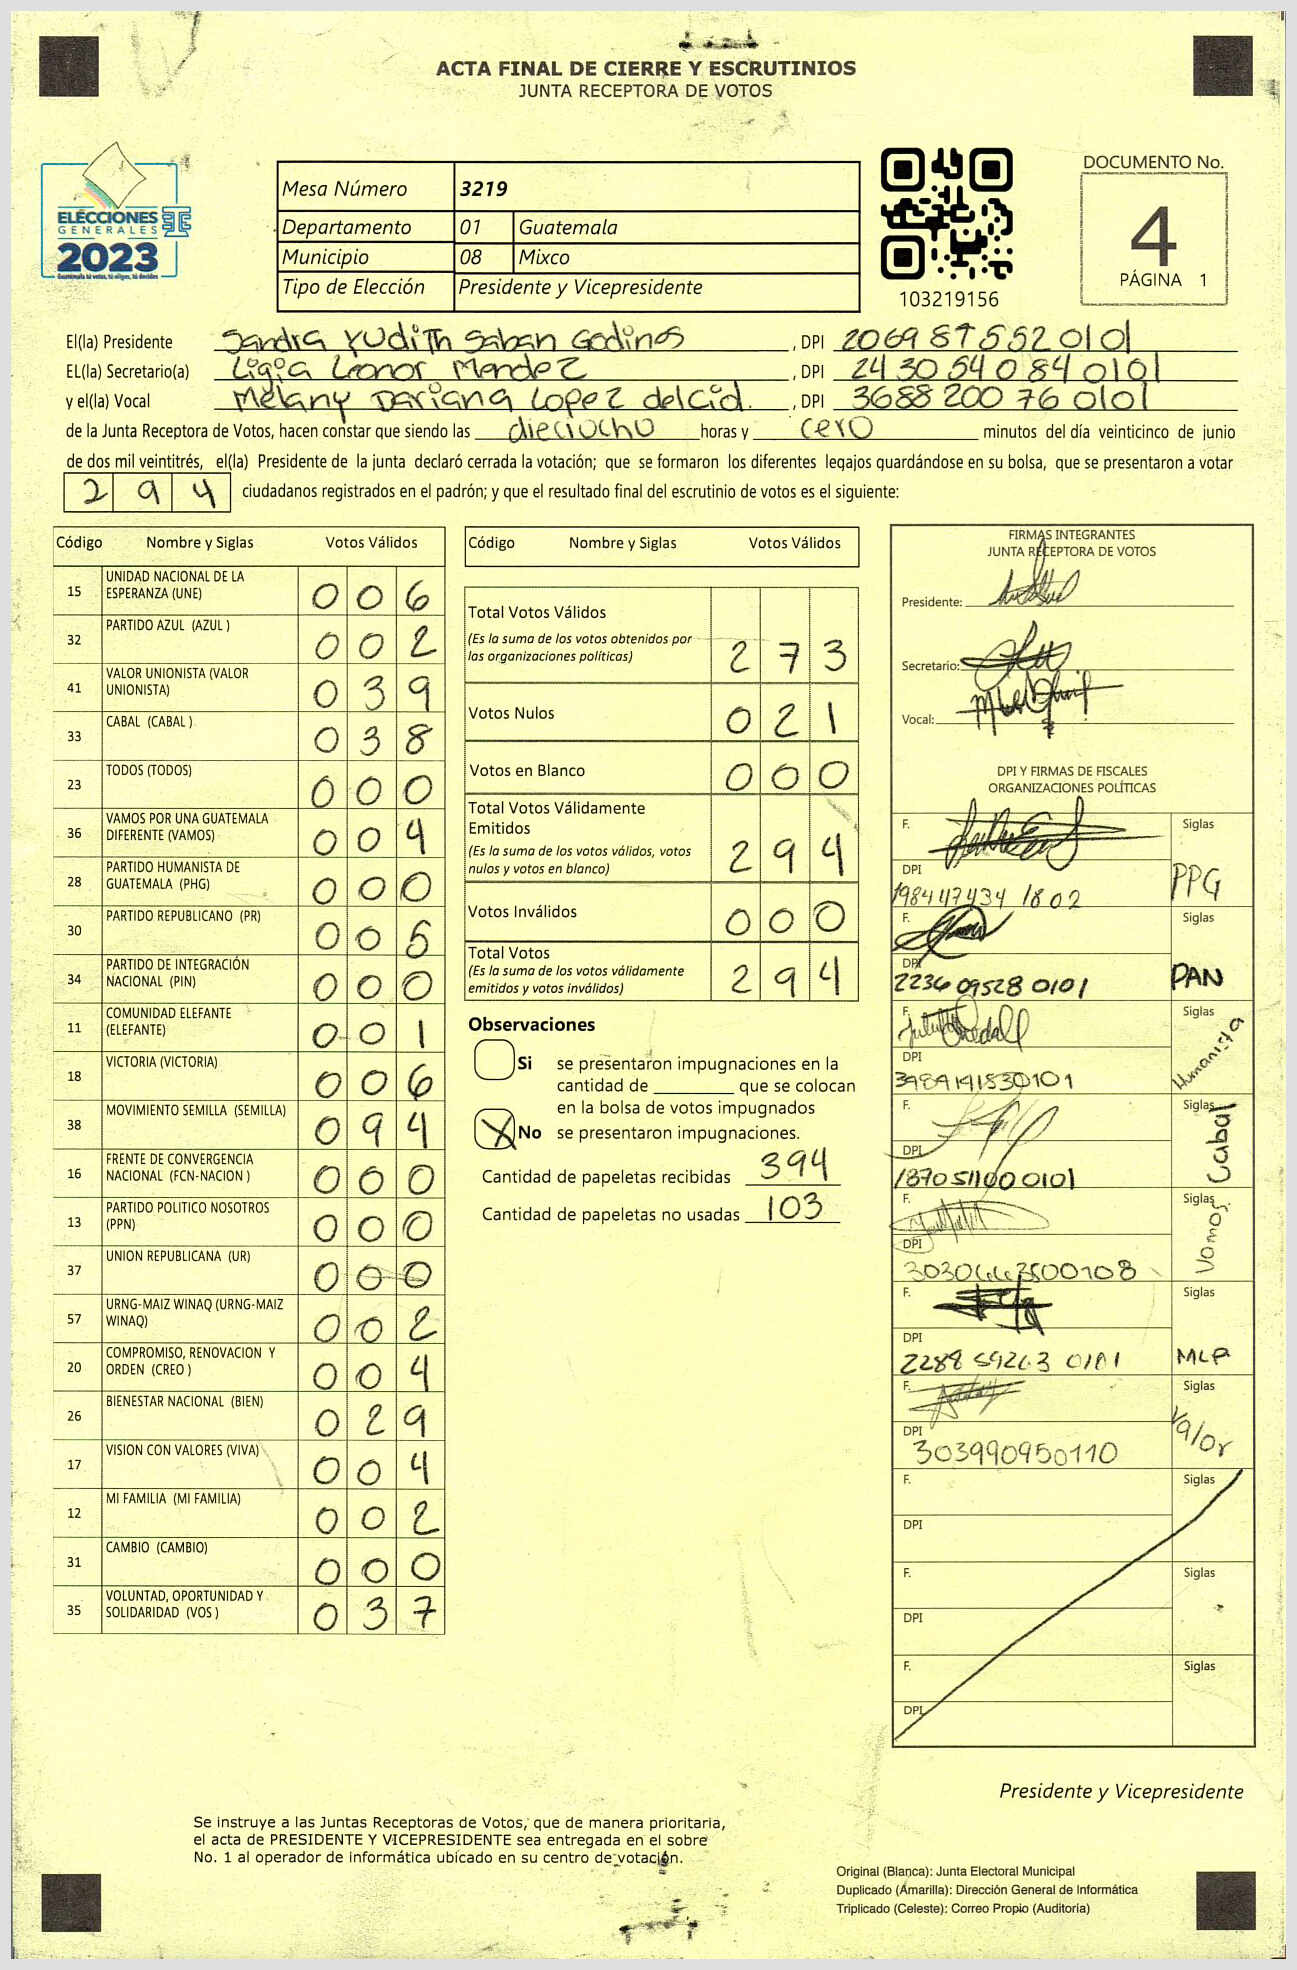 ACTA FINAL DE CIERRE Y ESCRUTINIOS
JUNTA RECEPTORA DE VOTOS
ELECCIONES
GENERALES
2023
Guatemala tú votas, tú eliges, tú decides
Mesa Número 3219
Departamento 01 Guatemala
Municipio 08 Mixco
Tipo de Elección Presidente y Vicepresidente
103219156
DOCUMENTO No.
4
PÁGINA 1
El(la) Presidente Sandra Yudith Saban Godinos, DPI 2069 87552 0101
EL(la) Secretario(a) Ligia Leonor Mendez, DPI 2430 54084 0101
y el(la) Vocal Melany Dariana Lopez delCid., DPI 3688 20076 0101
de la Junta Receptora de Votos, hacen constar que siendo las dieciocho horas y cero minutos del día veinticinco de junio
de dos mil veintitrés, el(la) Presidente de la junta declaró cerrada la votación; que se formaron los diferentes legajos guardándose en su bolsa, que se presentaron a votar
294 ciudadanos registrados en el padrón; y que el resultado final del escrutinio de votos es el siguiente:
Código Nombre y Siglas Votos Válidos
15 UNIDAD NACIONAL DE LA ESPERANZA (UNE) 006
32 PARTIDO AZUL (AZUL ) 002
41 VALOR UNIONISTA (VALOR UNIONISTA) 039
33 CABAL (CABAL ) 038
23 TODOS (TODOS) 000
36 VAMOS POR UNA GUATEMALA DIFERENTE (VAMOS) 004
28 PARTIDO HUMANISTA DE GUATEMALA (PHG) 000
30 PARTIDO REPUBLICANO (PR) 005
34 PARTIDO DE INTEGRACIÓN NACIONAL (PIN) 000
11 COMUNIDAD ELEFANTE (ELEFANTE) 001
18 VICTORIA (VICTORIA) 006
38 MOVIMIENTO SEMILLA (SEMILLA) 094
16 FRENTE DE CONVERGENCIA NACIONAL (FCN-NACION ) 000
13 PARTIDO POLITICO NOSOTROS (PPN) 000
37 UNION REPUBLICANA (UR) 000
57 URNG-MAIZ WINAQ (URNG-MAIZ WINAQ) 002
20 COMPROMISO, RENOVACION Y ORDEN (CREO ) 004
26 BIENESTAR NACIONAL (BIEN) 029
17 VISION CON VALORES (VIVA) 004
12 MI FAMILIA (MI FAMILIA) 002
31 CAMBIO (CAMBIO) 000
35 VOLUNTAD, OPORTUNIDAD Y SOLIDARIDAD (VOS ) 037
Código Nombre y Siglas Votos Válidos
Total Votos Válidos
(Es la suma de los votos obtenidos por
las organizaciones políticas) 273
Votos Nulos 021
Votos en Blanco 000
Total Votos Válidamente
Emitidos
(Es la suma de los votos válidos, votos
nulos y votos en blanco) 294
Votos Inválidos 000
Total Votos
(Es la suma de los votos válidamente
emitidos y votos inválidos) 294
Observaciones
Si se presentaron impugnaciones en la
cantidad de ________ que se colocan
en la bolsa de votos impugnados
X No se presentaron impugnaciones.
Cantidad de papeletas recibidas 394
Cantidad de papeletas no usadas 103
FIRMAS INTEGRANTES
JUNTA RECEPTORA DE VOTOS
Presidente:
Secretario:
Vocal:
DPI Y FIRMAS DE FISCALES
ORGANIZACIONES POLÍTICAS
F. Siglas
DPI PPG
1984 47434 1802
F. Siglas
DPI PAN
2236 09528 0101
F. Siglas
DPI Humanista
3989191830101
F. Siglas
DPI Cabal
1870 51100 0101
F. Siglas
DPI Vamos
F. Siglas
DPI MLP
2288 59263 0101
F. Siglas
DPI Valor
303990950110
F. Siglas
DPI
F. Siglas
DPI
F. Siglas
DPI
Presidente y Vicepresidente
Se instruye a las Juntas Receptoras de Votos, que de manera prioritaria,
el acta de PRESIDENTE Y VICEPRESIDENTE sea entregada en el sobre
No. 1 al operador de informática ubicado en su centro de votación.
Original (Blanca): Junta Electoral Municipal
Duplicado (Amarilla): Dirección General de Informática
Triplicado (Celeste): Correo Propio (Auditoria)